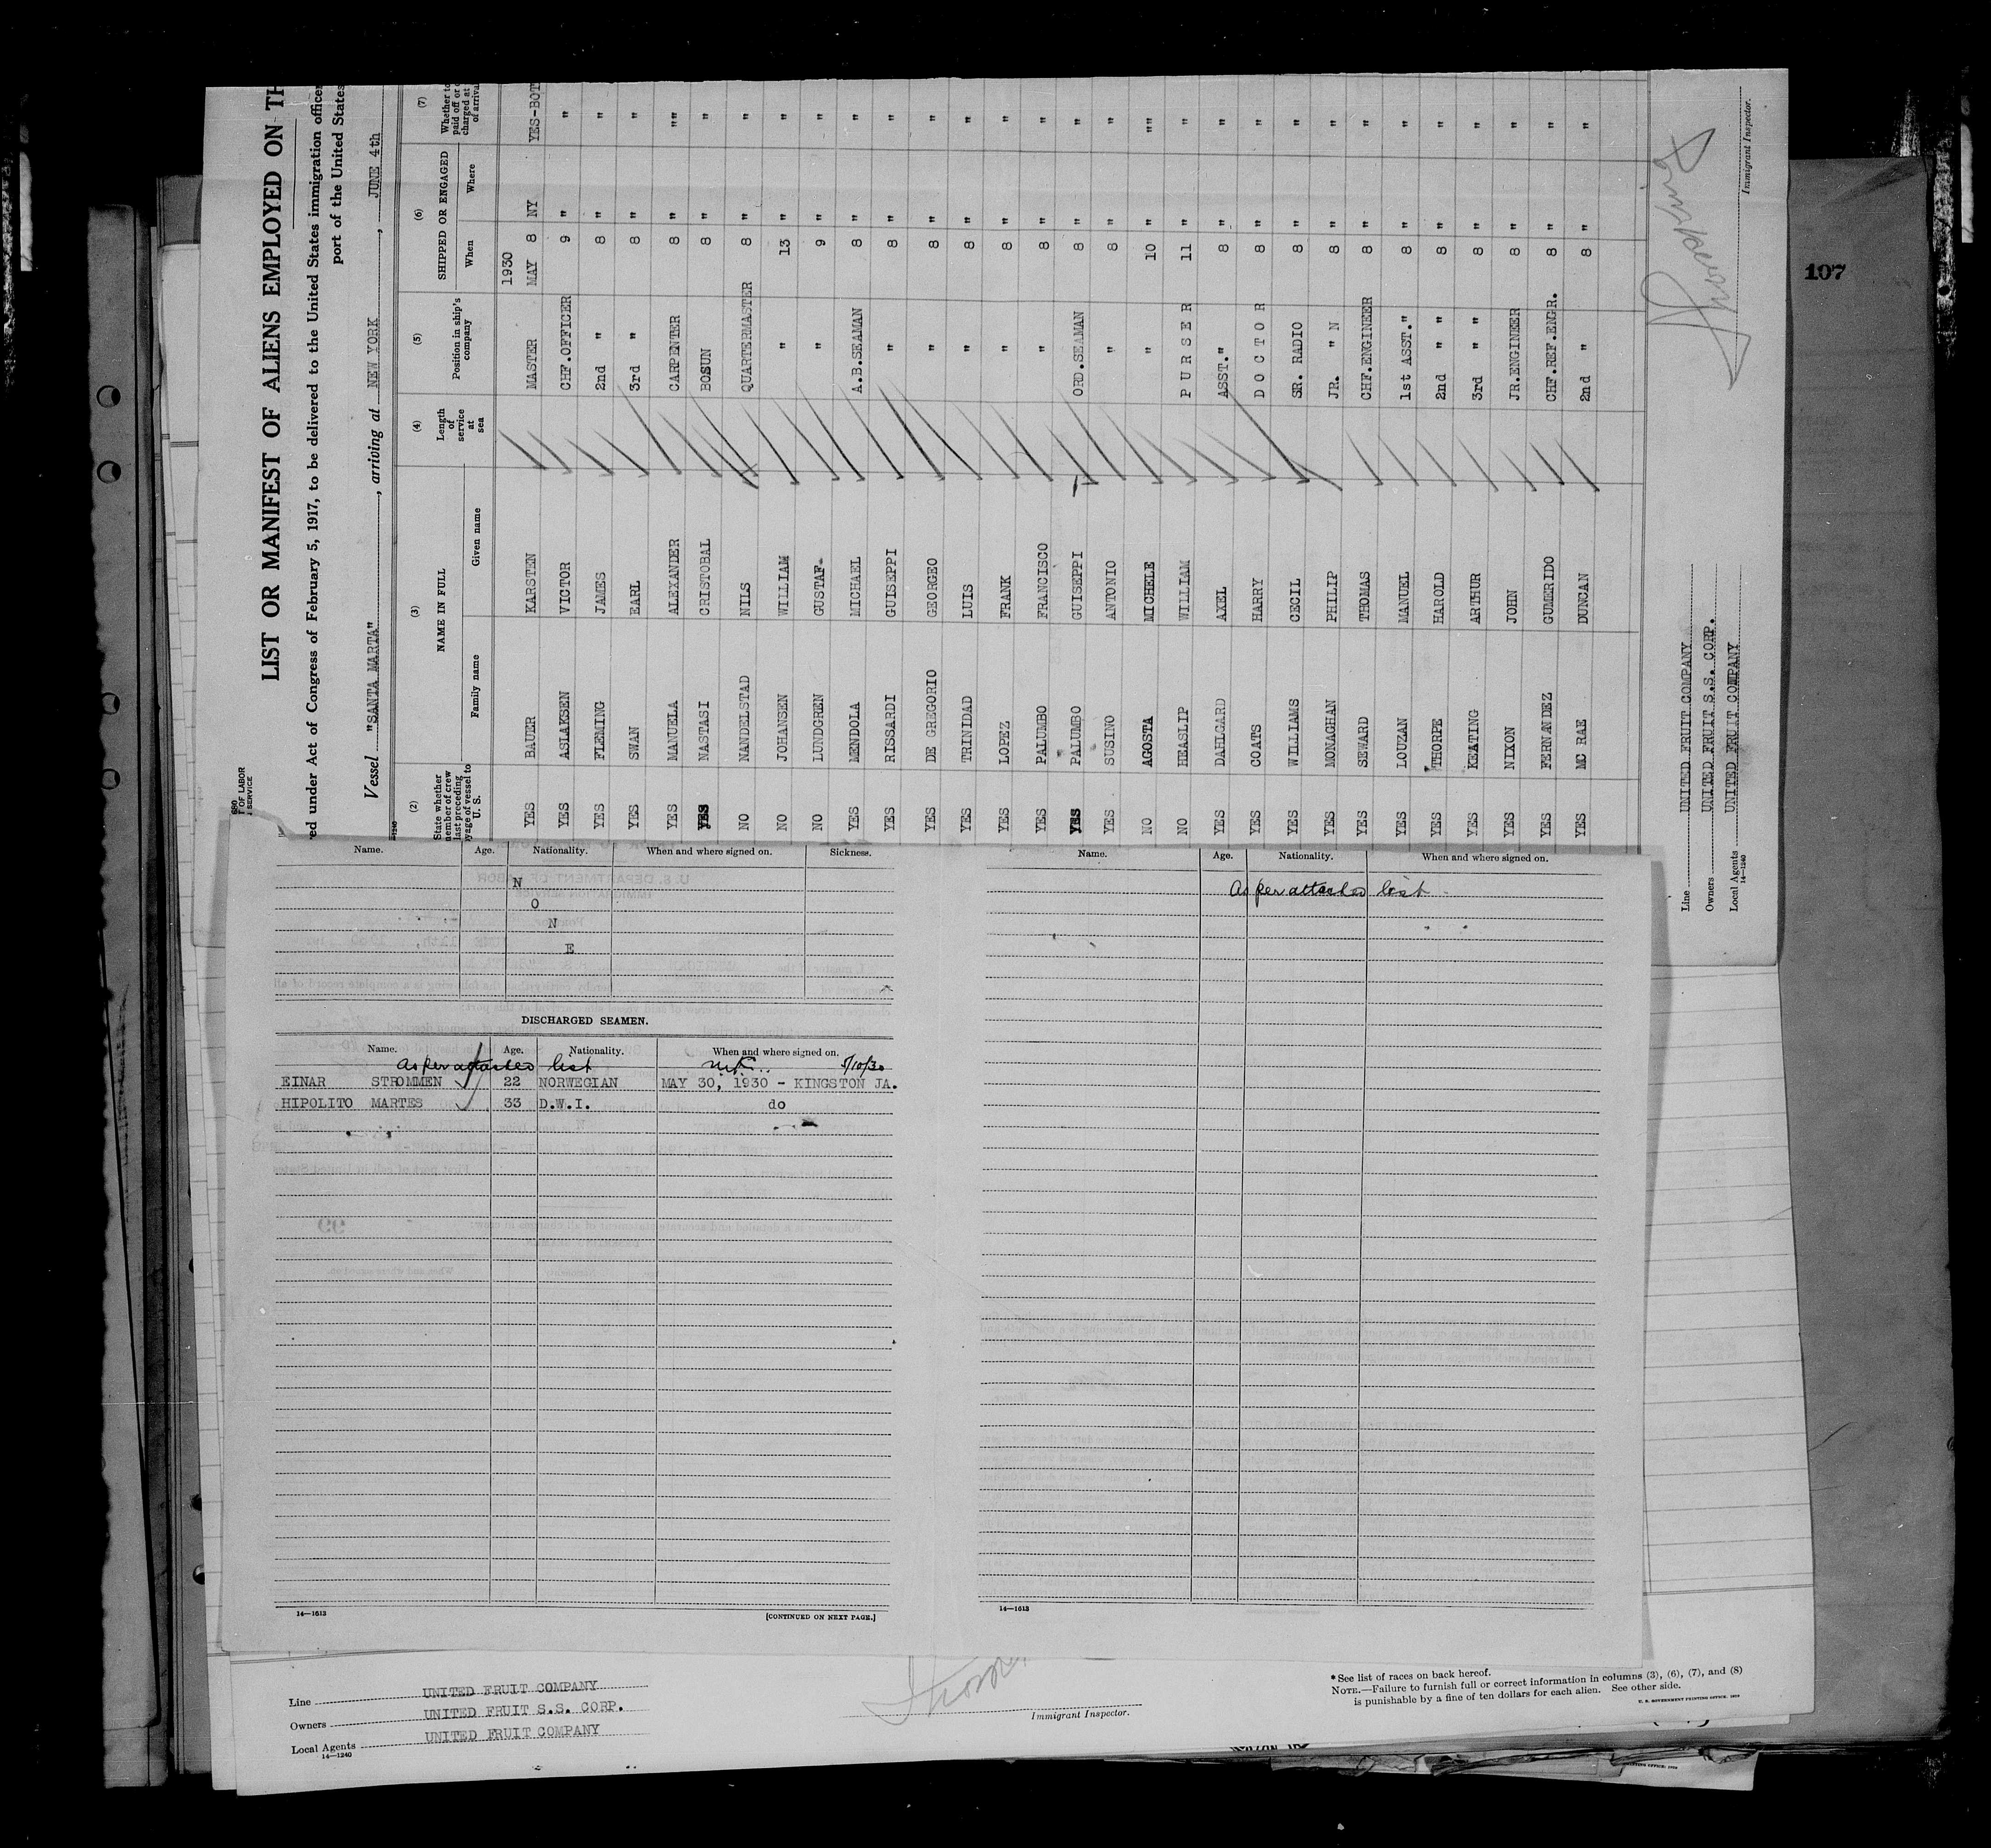 LIST OR MANIFEST OF ALIENS EMPLOYED ON TH
ed under Act of Congress of February 5, 1917, to be delivered to the United States immigration officer
port of the United States
OF LABOR
SERVICE
Vessel "SANTA MARTA", arriving at NEW YORK, JUNE 4th
(2) (3) (4) (5) (6) (7)
State whether member of crew last preceding voyage of vessel to U. S.
NAME IN FULL
Family name Given name
Length of service at sea
Position in ship's company
SHIPPED OR ENGAGED
When Where
Whether to paid off or charged at of arrival
1930
YES BAUER KARSTEN MASTER MAY 8 NY YES-BOT
YES ASLAKSEN VICTOR CHF.OFFICER 9 " "
YES FLEMING JAMES 2nd " 8 " "
YES SWAN EARL 3rd " 8 " "
YES MANUELA ALEXANDER CARPENTER 8 " ""
YES NASTASI CRISTOBAL BOSUN 8 " "
NO NANDELSTAD NILS QUARTERMASTER 8 " "
NO JOHANSEN WILLIAM " 13 " "
NO LUNDGREN GUSTAF " 9 " "
YES MENDOLA MICHAEL A.B.SEAMAN 8 " "
YES RISSARDI GUISEPPI " 8 " "
YES DE GREGORIO GEORGEO " 8 " "
YES TRINIDAD LUIS " 8 " "
YES LOPEZ FRANK " 8 " "
YES PALUMBO FRANCISCO " 8 " "
YES PALUMBO GUISEPPI ORD.SEAMAN 8 " "
YES SUSINO ANTONIO " 8 " "
NO AGOSTA MICHELE " 10 " ""
NO HEASLIP WILLIAM P U R S E R 11 " "
YES DAHLGARD AXEL ASST." 8 " "
YES COATS HARRY D O C T O R 8 " "
YES WILLIAMS CECIL SR. RADIO 8 " "
YES MONAGHAN PHILIP JR. " N 8 " "
YES SEWARD THOMAS CHF.ENGINEER 8 " "
YES LOUZAN MANUEL 1st ASST." 8 " "
YES THORPE HAROLD 2nd " " 8 " "
YES KEATING ARTHUR 3rd " " 8 " "
YES NIXON JOHN JR.ENGINEER 8 " "
YES FERNANDEZ GUMERIDO CHF.REF.ENGR. 8 " "
YES MC RAE DUNCAN 2nd " 8 " "
Line UNITED FRUIT COMPANY
Owners UNITED FRUIT S.S. CORP.
Local Agents UNITED FRUIT COMPANY
14—1240
Immigrant Inspector.
107
Name. Age. Nationality. When and where signed on. Sickness.
N
O
N
E
DISCHARGED SEAMEN.
Name. Age. Nationality. When and where signed on.
As per attached list 5/10/30
EINAR STROMMEN 22 NORWEGIAN MAY 30, 1930 - KINGSTON JA.
HIPOLITO MARTES 33 D.W.I. do
14—1613
[CONTINUED ON NEXT PAGE.]
Name. Age. Nationality. When and where signed on.
As per attached list
14—1613
Line UNITED FRUIT COMPANY
Owners UNITED FRUIT S.S. CORP.
Local Agents UNITED FRUIT COMPANY
14—1240
Immigrant Inspector.
*See list of races on back hereof.
NOTE.—Failure to furnish full or correct information in columns (3), (6), (7), and (8)
is punishable by a fine of ten dollars for each alien. See other side.